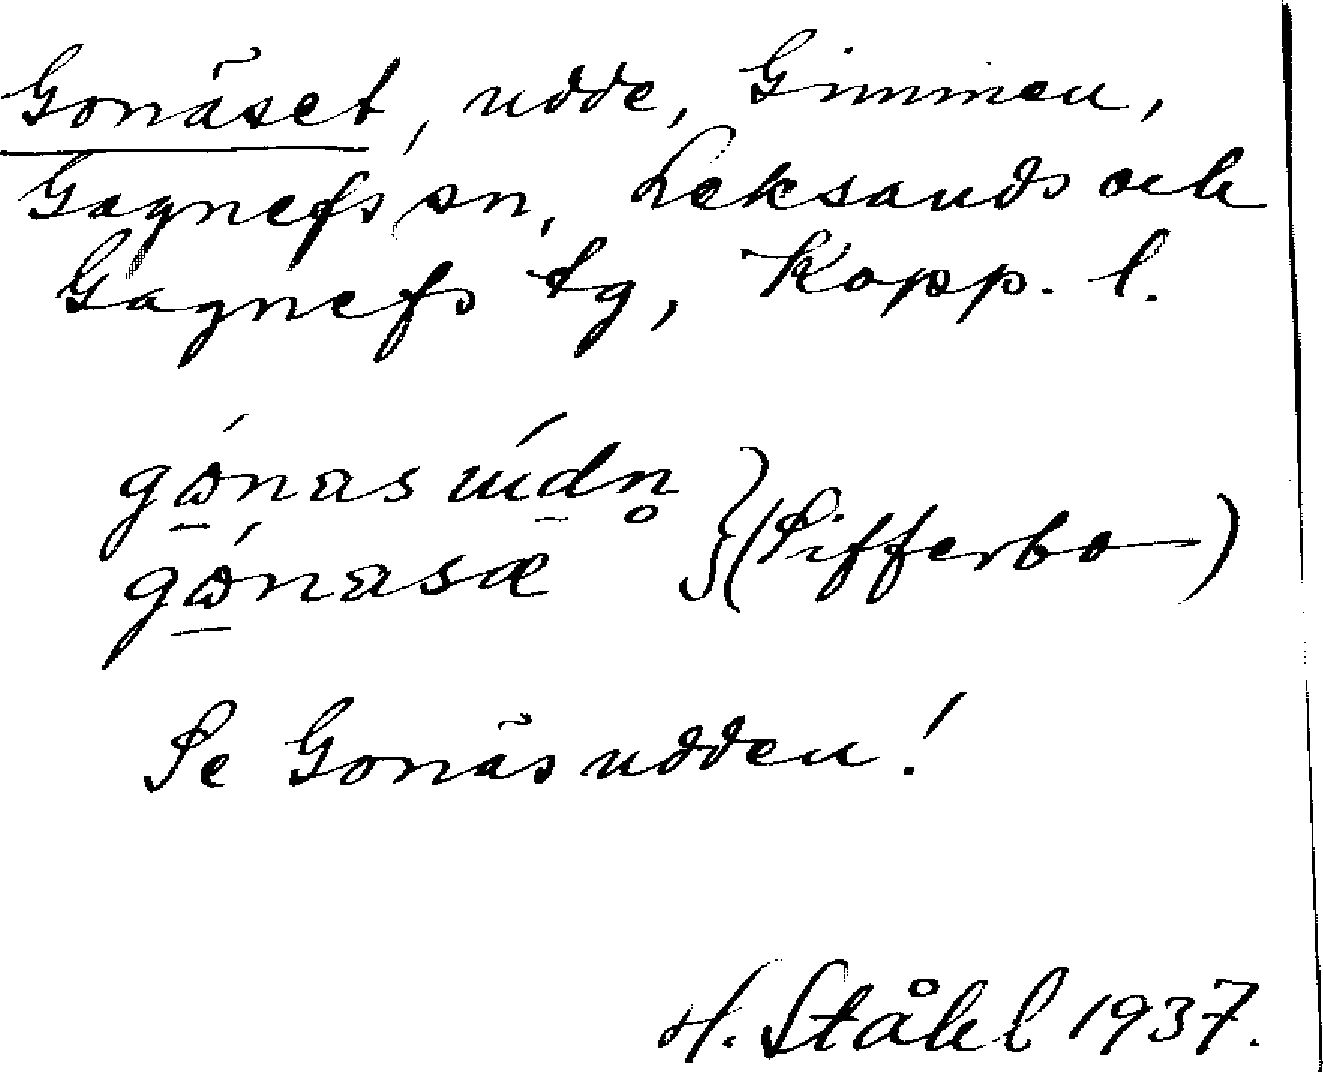 Gonäset, udde, Gimmen,
Gagnefs sn, Leksands och
Gagnefs tg, Kopp. l.
gǫ́nas
gǫ́nasæ
(Sifferbo)
Se Gonäsudden!
H. Ståhl 1937.